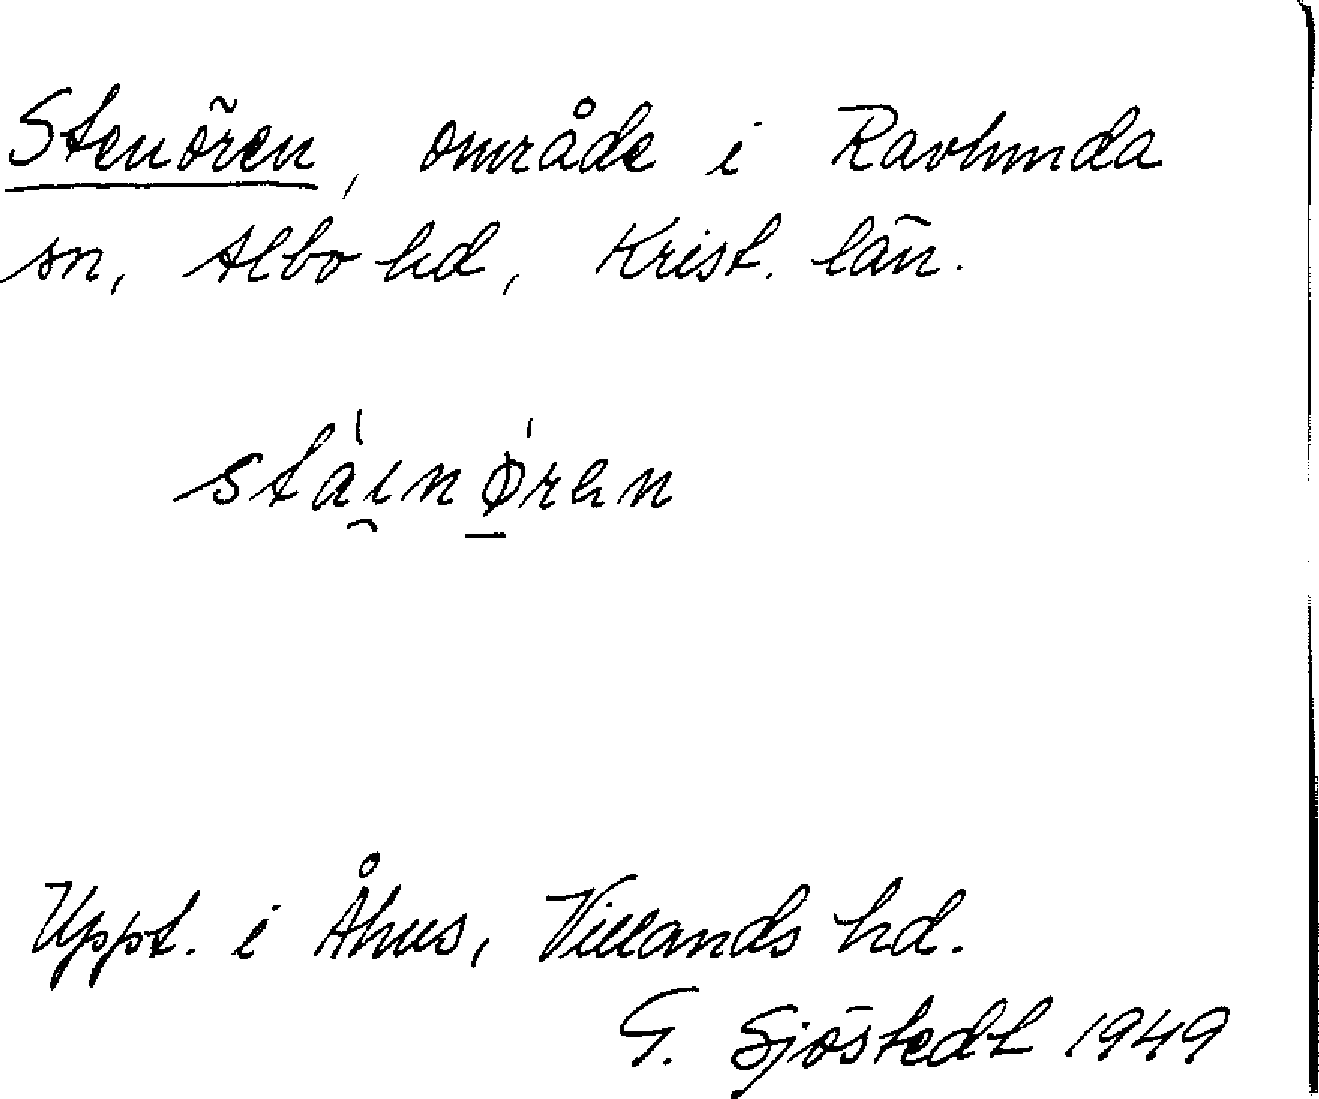 Stenören, område i Ravlunda
sn, Albo hd, Krist. län.
stäınøren
Uppt. i Åhus, Villands hd.
G. Sjöstedt 1949